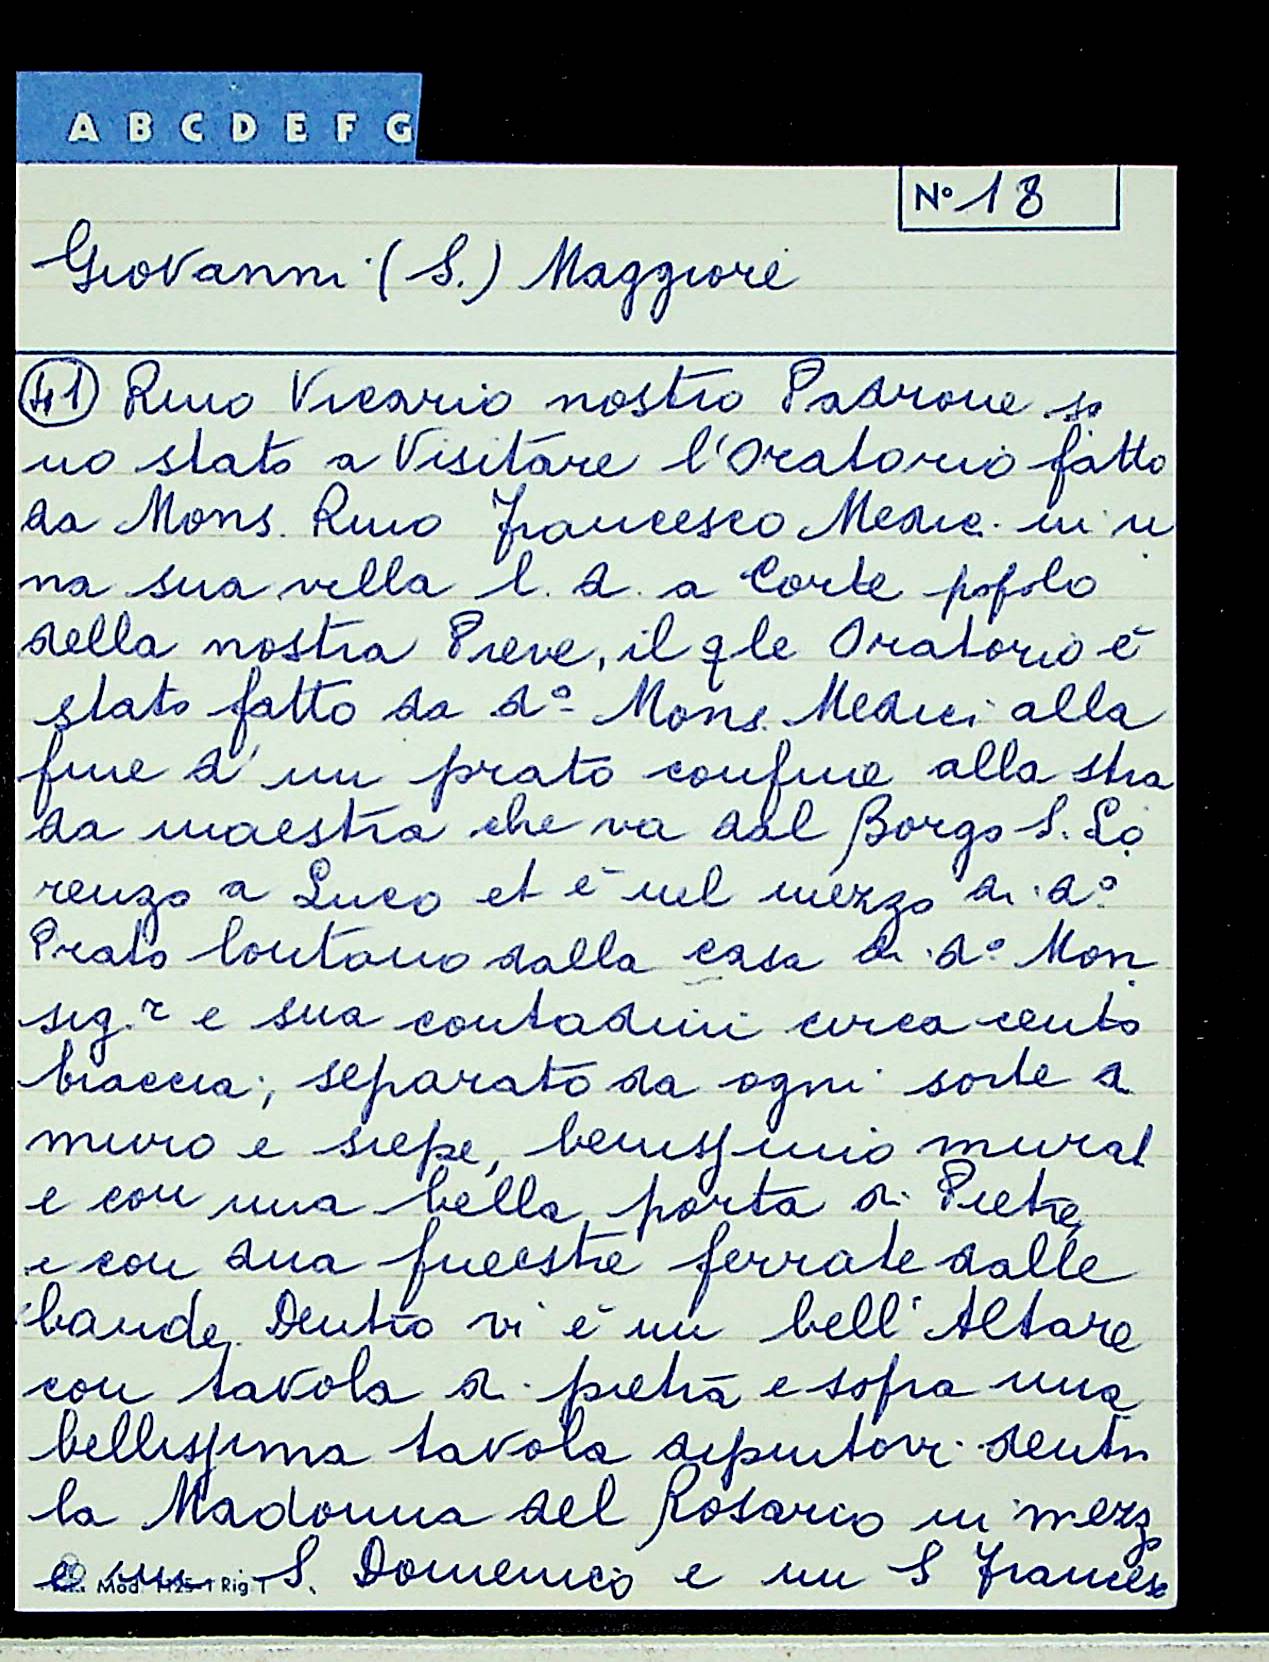 A B C D E F G
N° 18
Giovanni (S.) Maggiore
41) Rmo Vicario nostro Padrone so
no stato a Visitare l'Oratorio fatto
da Mons. Rmo Francesco Medic. in u
na sua villa l. d. a Corte popolo
della nostra Pieve, il qle Oratorio è
stato fatto da d° Mons. Medici alla
fine d'un prato confine alla stra
da maestra che va dal Borgo S. Lo
renzo a Luco et è nel mezzo di d°
Prato lontano dalla casa di d° Mon
sig.r e sua contadini circa cento
braccia; separato da ogni sorte d
muro e siepe, benissimo murat
e con una bella porta di Pietra
e con dua fineestre ferrate dalle
bande. Dentro vi è un bell'Altare
con tavola di pietra e sopra una
bellissima tavola dipintovi dentr
la Madonna del Rosario in mezz
e un S. Domenico e un S Francesc
Mod. 125-1 Rig. 1